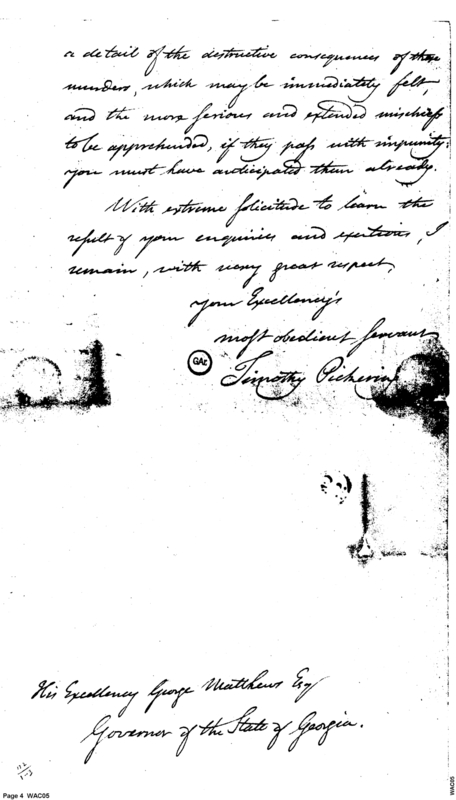 a detail of the destructive consequences of these
murders, which may be immediately felt,
and the more serious and extended mischiefs
to be apprehended, if they pass with impunity:
you must have anticipated them already.
With extreme solicitude to learn the
result of your enquiries and exertions, I
remain, with very great respect,
your Excellency's
most obedient servant
GAr
Timothy Pickering
His Excellency George Matthews Esq
Governor of the State of Georgia.
Page 4 WAC05
WAC05